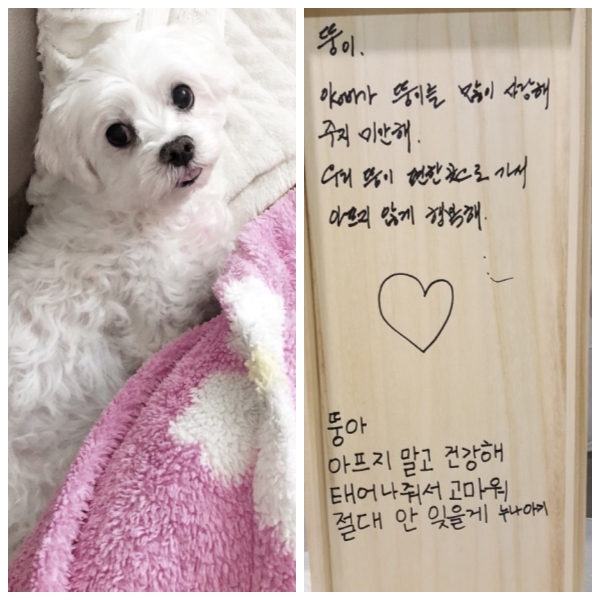 뚱이.
아빠가 뚱이를 많이 사랑해
주지 미안해.
우리 뚱이 편한곳으로 가서
아프지 않게 행복해.
뚱아
아프지 말고 건강해
태어나줘서 고마워
절대 안 잊을게 누나야가